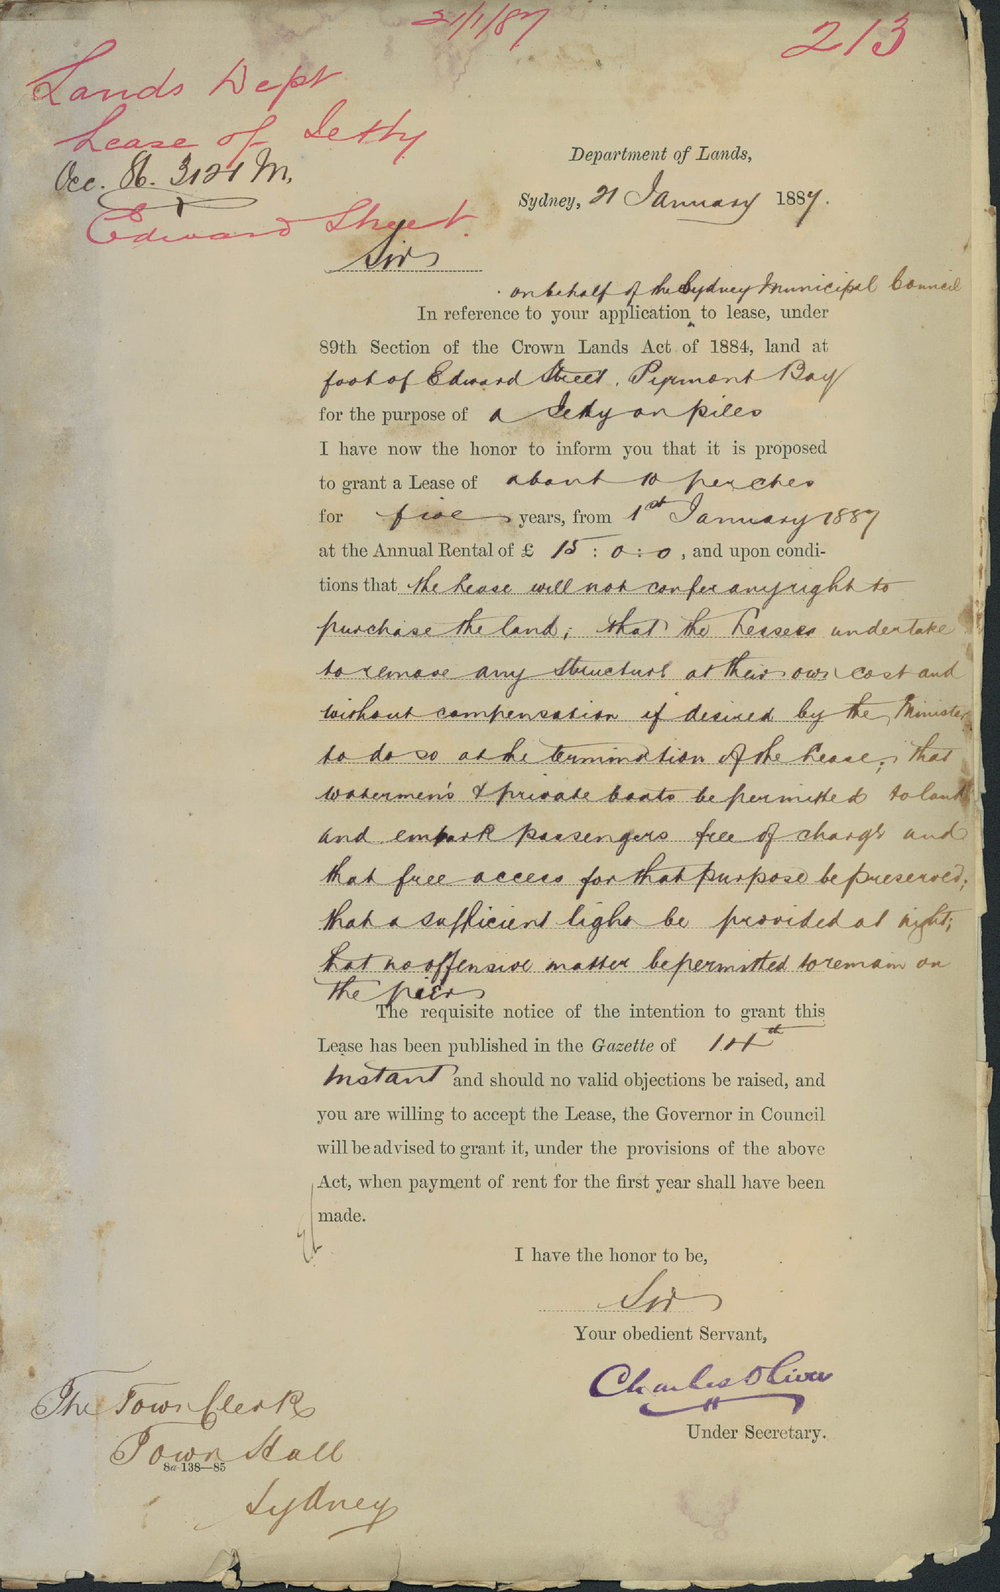 21/1/87
213
Lands Dept
Lease of Jetty
Occ. 86. 3121 M.
Edward Street.
Department of Lands,
Sydney, 21 January 1887.
Sir
on behalf of the Sydney Municipal Council
In reference to your application to lease, under
89th Section of the Crown Lands Act of 1884, land at
foot of Edward Street, Pyrmont Bay
for the purpose of a Jetty on piles
I have now the honor to inform you that it is proposed
to grant a Lease of about 10 perches
for five years, from 1st January 1887
at the Annual Rental of £ 15 : 0 : 0, and upon condi-
tions that the Lease will not confer any right to
purchase the land; that the Lessees undertake
to remove any structure at their own cost and
without compensation if desired by the Minister
to do so at the termination of the Lease; that
watermen's & private boats be permitted to land
and embark passengers free of charge and
that free access for that purpose be preserved;
that a sufficient light be provided at night;
that no offensive matter be permitted to remain on
the pier
The requisite notice of the intention to grant this
Lease has been published in the Gazette of 14th
Instant and should no valid objections be raised, and
you are willing to accept the Lease, the Governor in Council
will be advised to grant it, under the provisions of the above
Act, when payment of rent for the first year shall have been
made.
I have the honor to be,
Sir
Your obedient Servant,
Charles Oliver
Under Secretary.
The Town Clerk
Town Hall
8a 138—85
Sydney